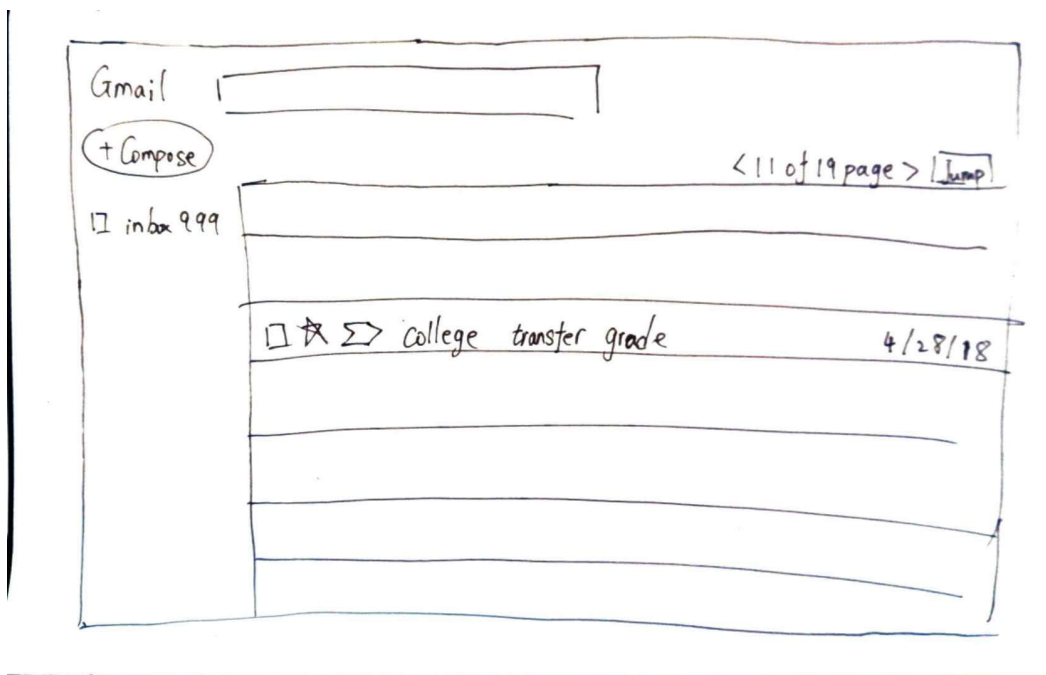 Gmail
+ Compose
< 11 of 19 page > Jump
inbox 999
college transfer grade 4/28/18